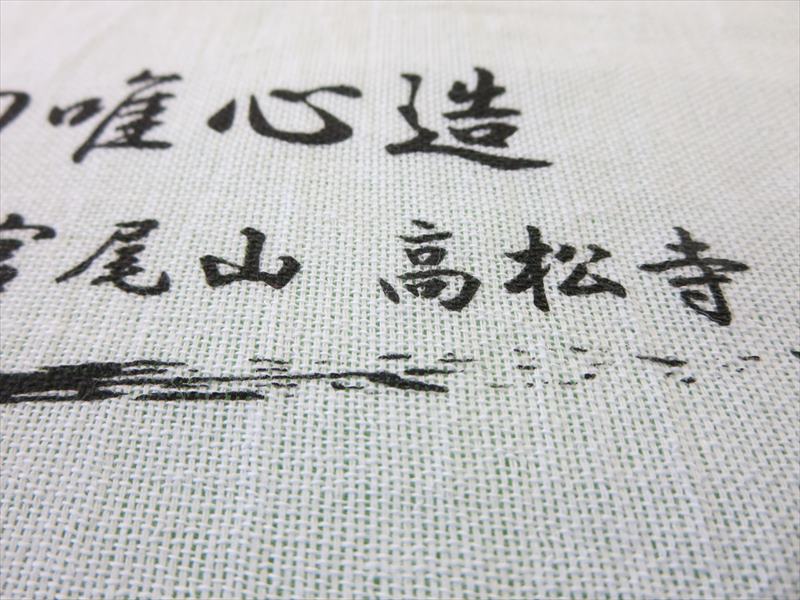 唯心造
宮尾山 高松寺